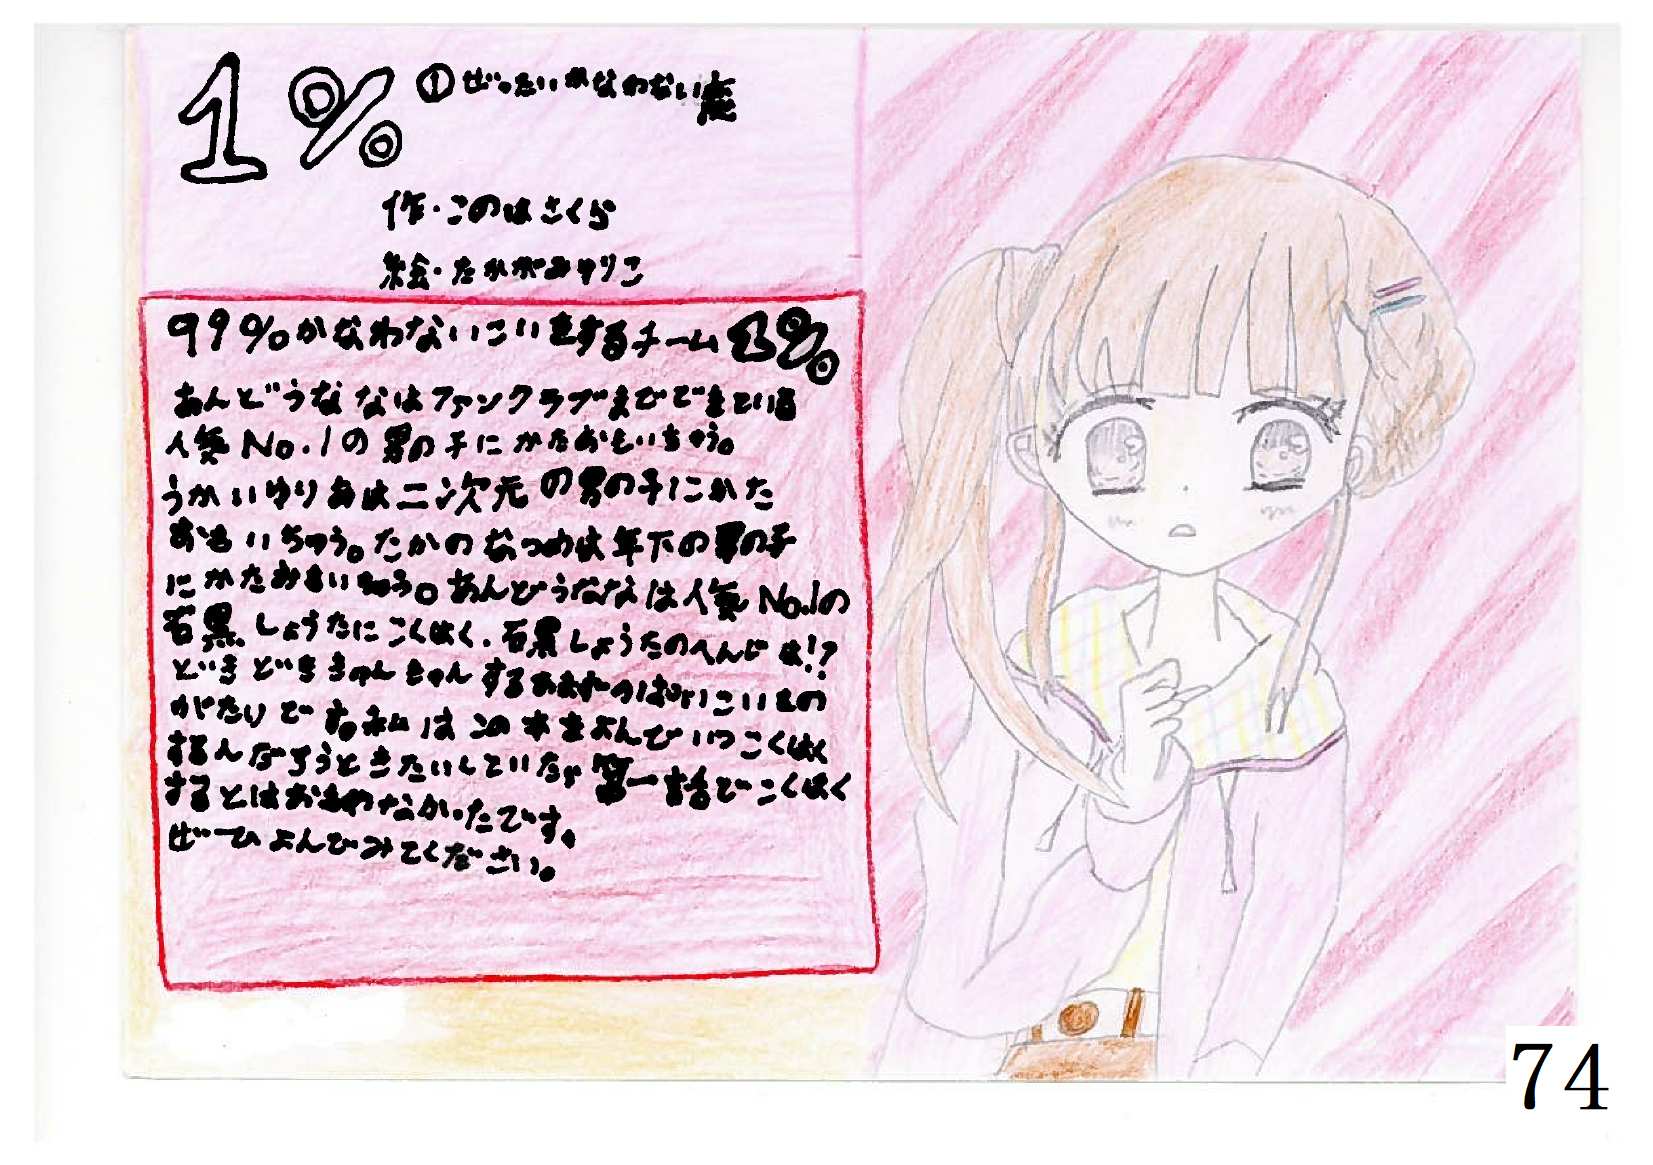 1% ①ぜったいかなわない恋
作・このはさくら
絵・たかがみゆりこ
99%かなわないこいをするチーム1%
あんどうななはファンクラブまでできている
人気No.1の男の子にかたおもいちゅう。
うかいゆりあは二次元の男の子にかた
おもいちゅう。たかのなつめは年下の男の子
にかたおもいちゅう。あんどうななは人気No.1の
石黒しょうたにこくはく、石黒しょうたのへんじは!?
どきどききゅんきゅんするあまずっぱいこいもの
がたりです。私はこの本をよんでいつこくはく
するんだろうときたいしていたが第一話でこくはく
するとはおもわなかったです。
ぜひよんでみてください。
74